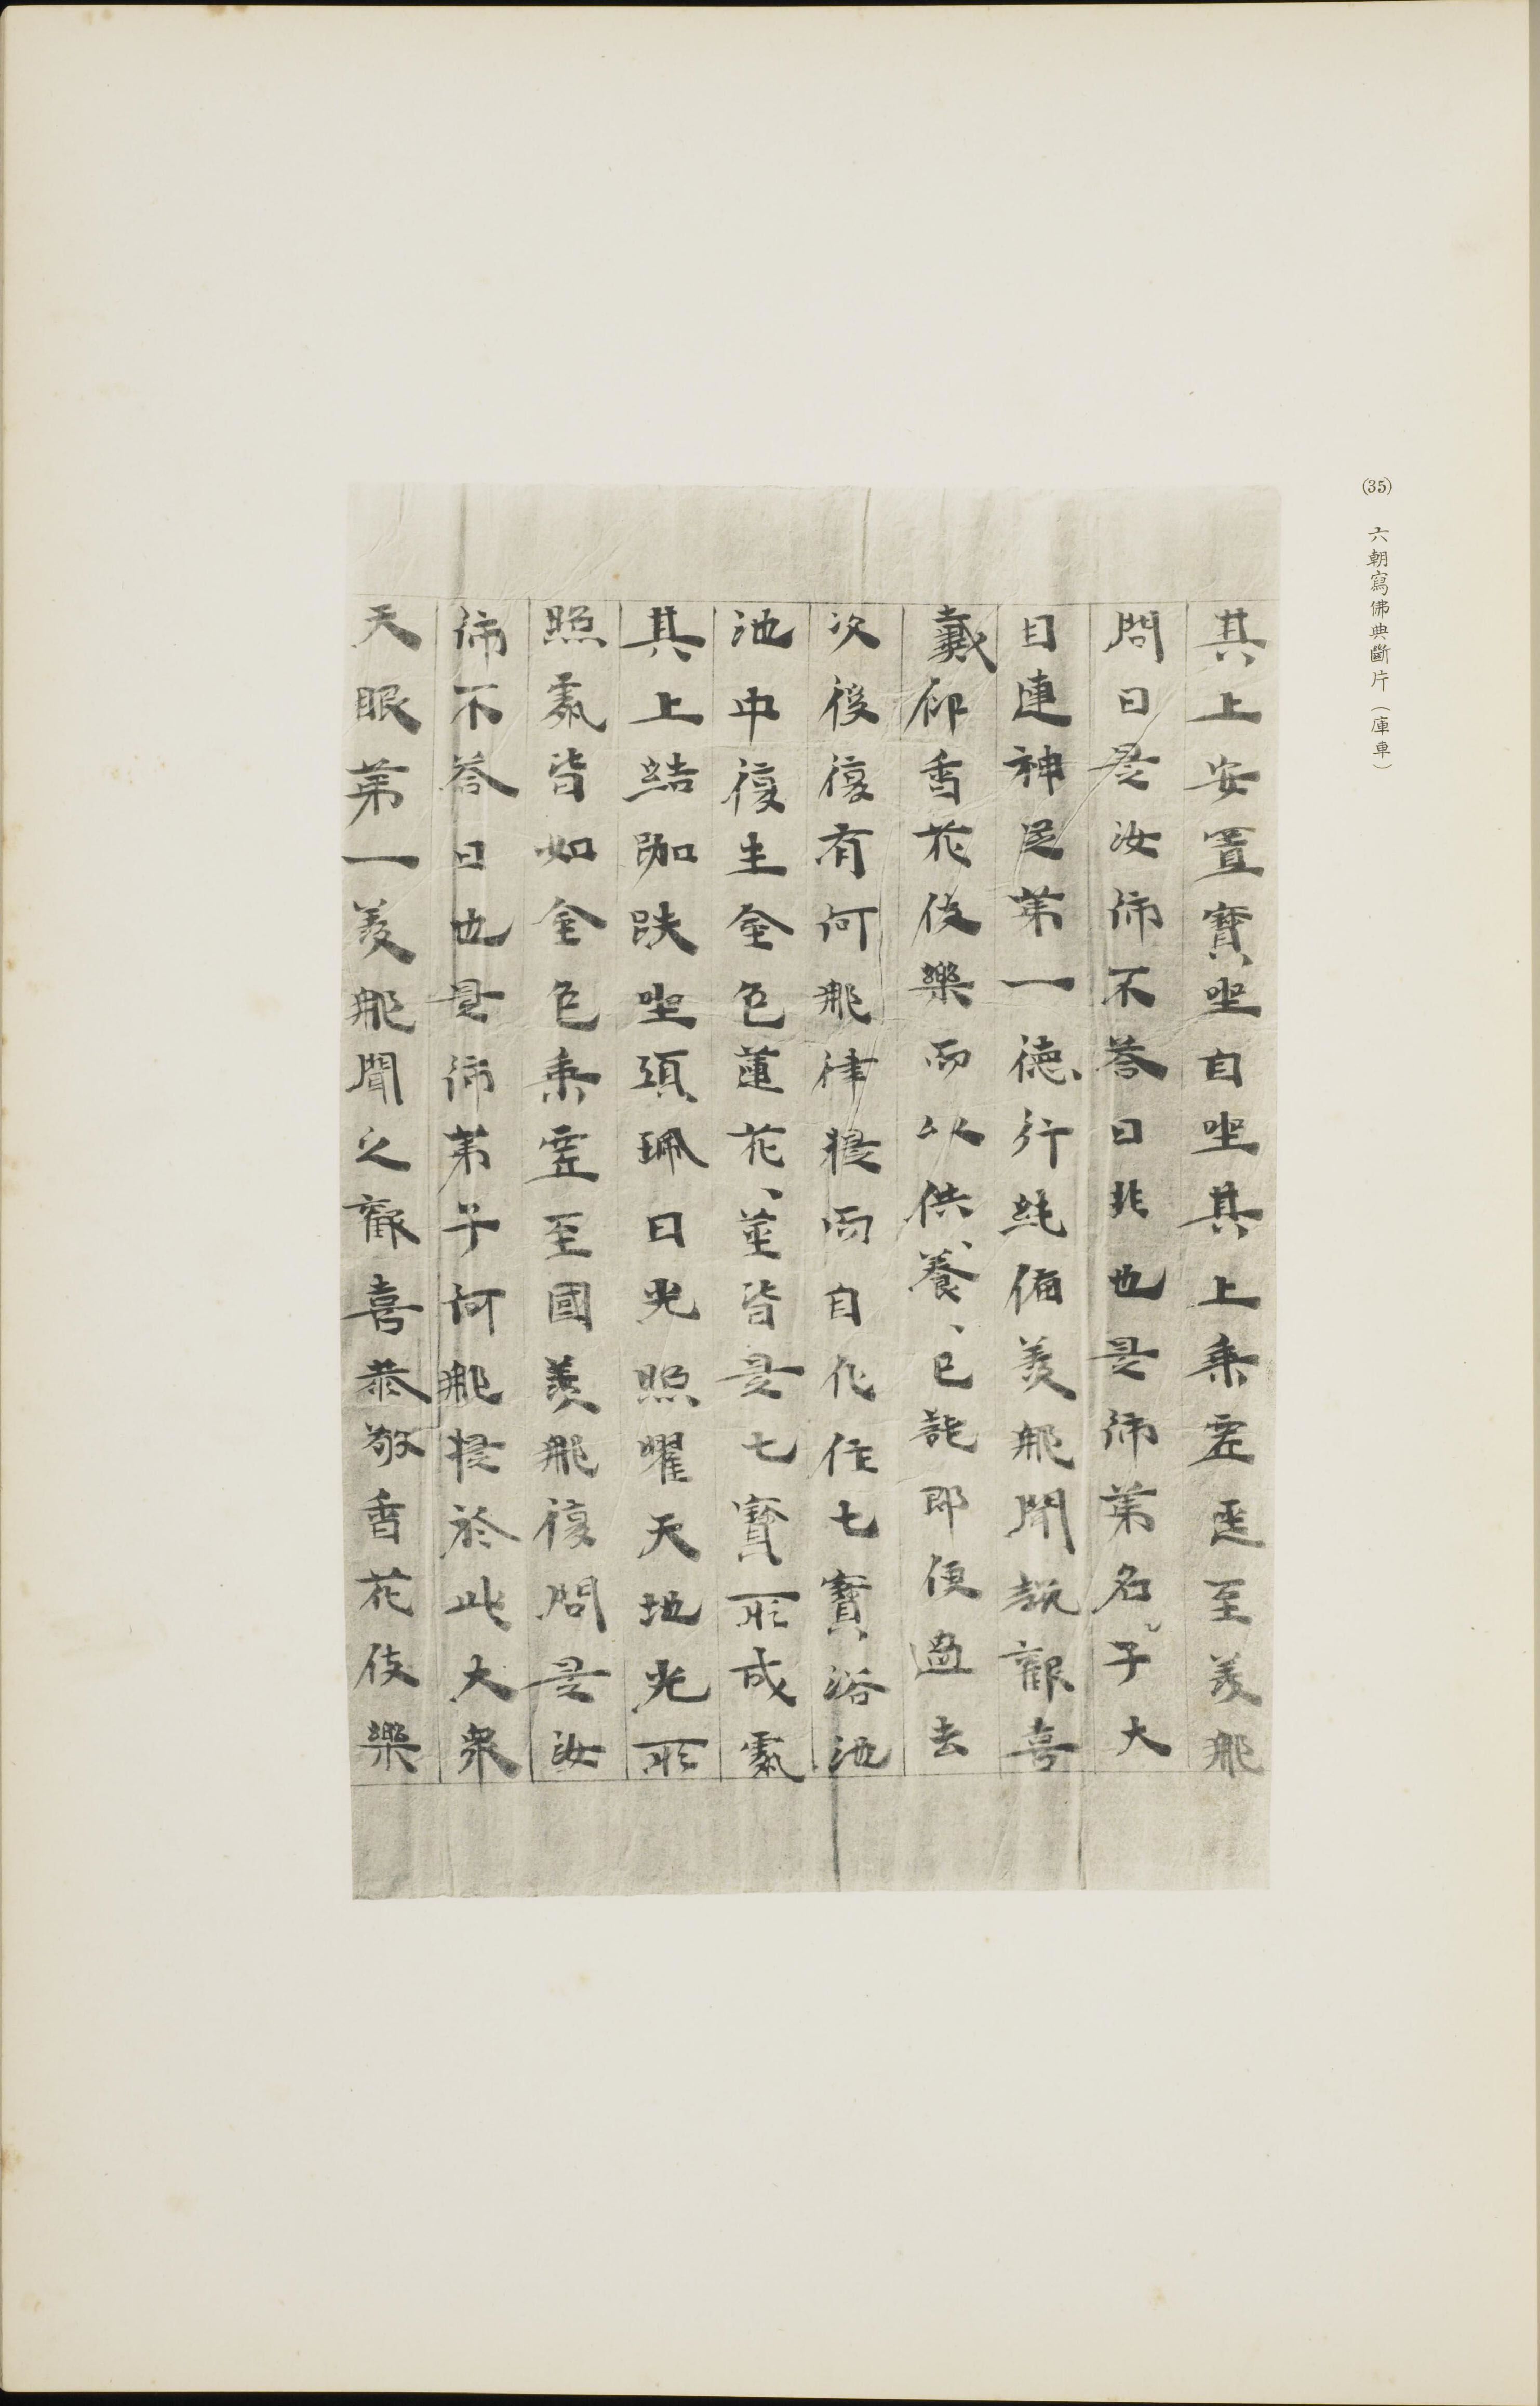 (35) 六朝寫佛典斷片（庫車）
其上安置寶坐自坐其上乘虛迳至羨那
問曰是汝師不荅曰非也是師第名子大
目連神足第一德行純俻羨那聞說歡喜
戴仰香花伎樂而以供養已訖即便過去
次後復有阿那律提而自化作七寶浴池
池中復生金色蓮花莖皆是七寶所成處
其上結跏趺坐項珮日光照曜天地光所
照處皆如金色乘虛至國羨那復問是汝
師不荅曰也是師弟子阿那提於此大衆
天眼第一羨那聞之歡喜恭敬香花伎樂